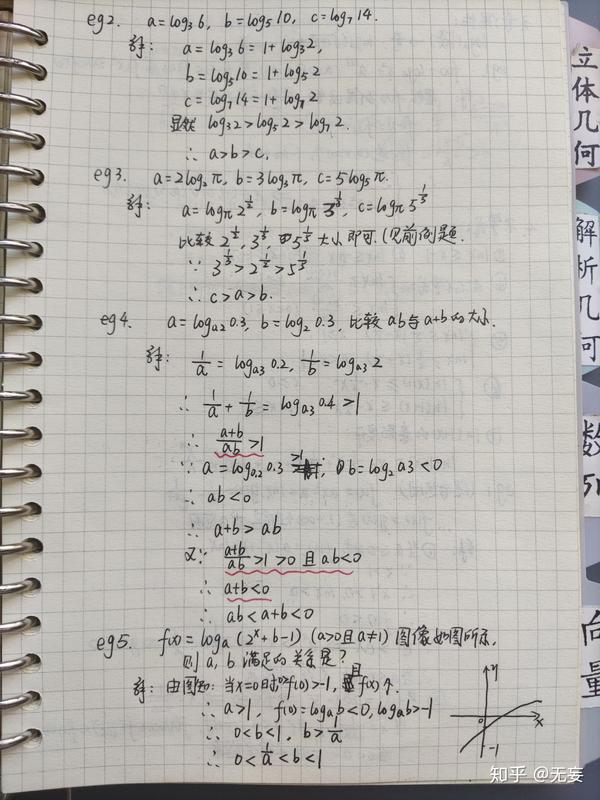 eg2. a=log₃6, b=log₅10, c=log₇14.
解: a=log₃6=1+log₃2,
b=log₅10=1+log₅2
c=log₇14=1+log₇2
显然 log₃2>log₅2>log₇2.
∴ a>b>c.
eg3. a=2log₂π, b=3log₃π, c=5log₅π.
解: a=logπ 2^(1/2), b=logπ 3^(1/3), c=logπ 5^(1/5)
比较 2^(1/2), 3^(1/3), 5^(1/5) 大小即可.(见前例题.
∵ 3^(1/3)>2^(1/2)>5^(1/5)
∴ c>a>b.
eg4. a=log₀.₂0.3, b=log₂0.3, 比较 ab与a+b的大小.
解: 1/a = log₀.₃0.2, 1/b=log₀.₃2
∴ 1/a + 1/b = log₀.₃0.4>1
∴ (a+b)/ab>1
∵ a=log₀.₂0.3 >1; b=log₂0.3<0
∴ ab<0
∴ a+b>ab
又∵ (a+b)/ab>1>0 且 ab<0
∴ a+b<0
∴ ab<a+b<0
eg5. f(x)=logₐ(2ˣ+b-1) (a>0且a≠1) 图像如图所示,
则a, b 满足的关系是?
解: 由图知: 当x=0时0>f(0)>-1, 且f(x)↑.
∴ a>1, f(0)=logₐb<0, logₐb>-1
∴ 0<b<1, b>1/a
∴ 0<1/a<b<1
y
0
x
-1
立体几何
解析几何
数列
向量
知乎 @无妄